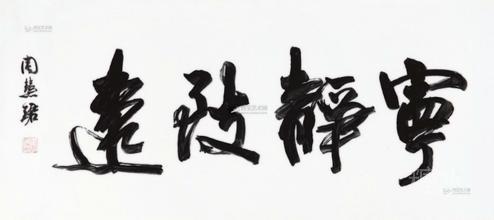 寧靜致遠
周慧珺